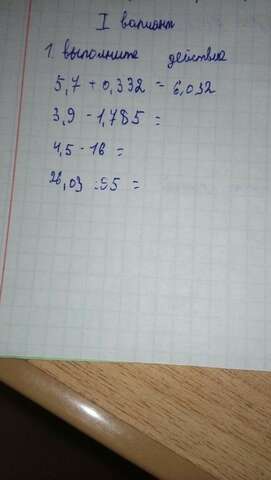 I вариант
1. выполните действия
5,7 + 0,332 = 6,032
3,9 - 1,785 =
4,5 · 16 =
26,03 : 95 =